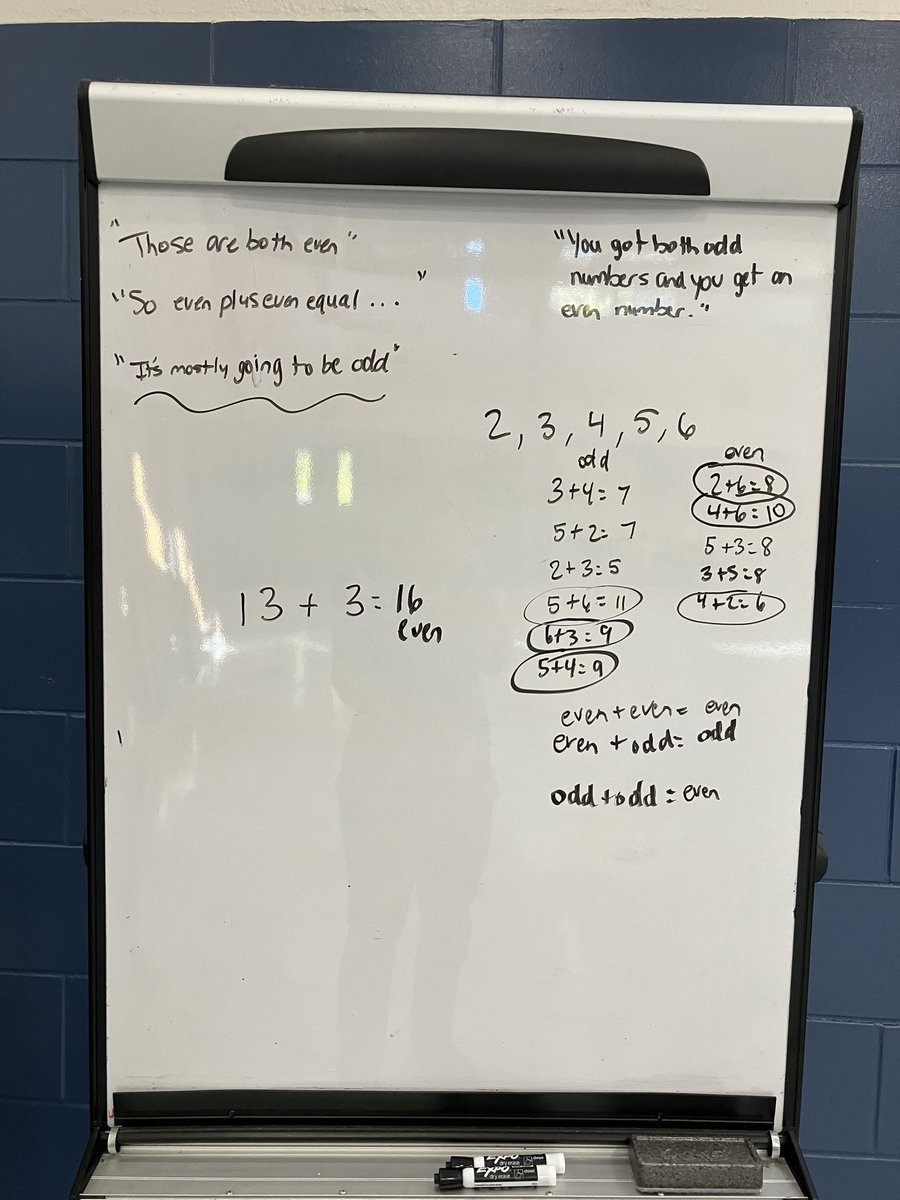 "Those are both even"
"So even plus even equal ..."
"It's mostly going to be odd"
"You got both odd
numbers and you get an
even number."
2, 3, 4, 5, 6
odd
3+4=7
5+2=7
2+3=5
5+6=11
6+3=9
5+4=9
even
2+6=8
4+6=10
5+3=8
3+5=8
4+2=6
13+3=16
even
even+even= even
even + odd= odd
odd+odd = even
EXPO
dry erase
EXPO
dry erase